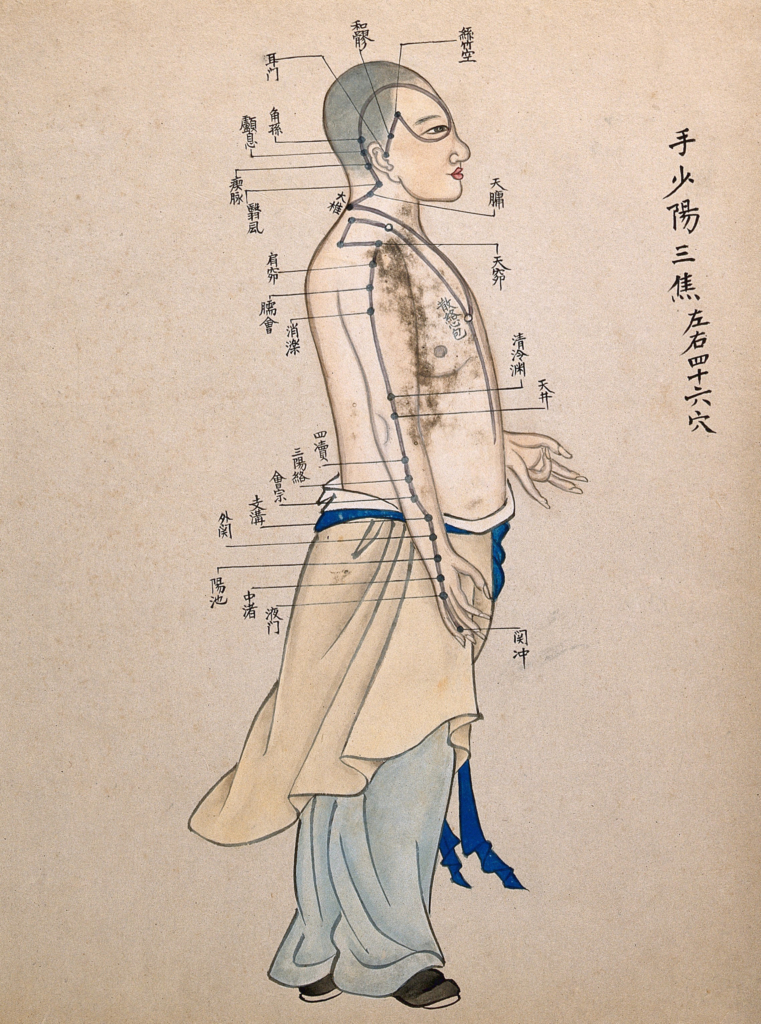 手少陽三焦左右四十六穴
絲竹空
和髎
耳门
角孫
顱息
瘈脉
翳風
大椎
天牖
天窌
肩窌
臑會
消濼
散絡心包
清冷渊
天井
四瀆
三陽絡
會宗
支溝
外関
陽池
中渚
液门
関冲